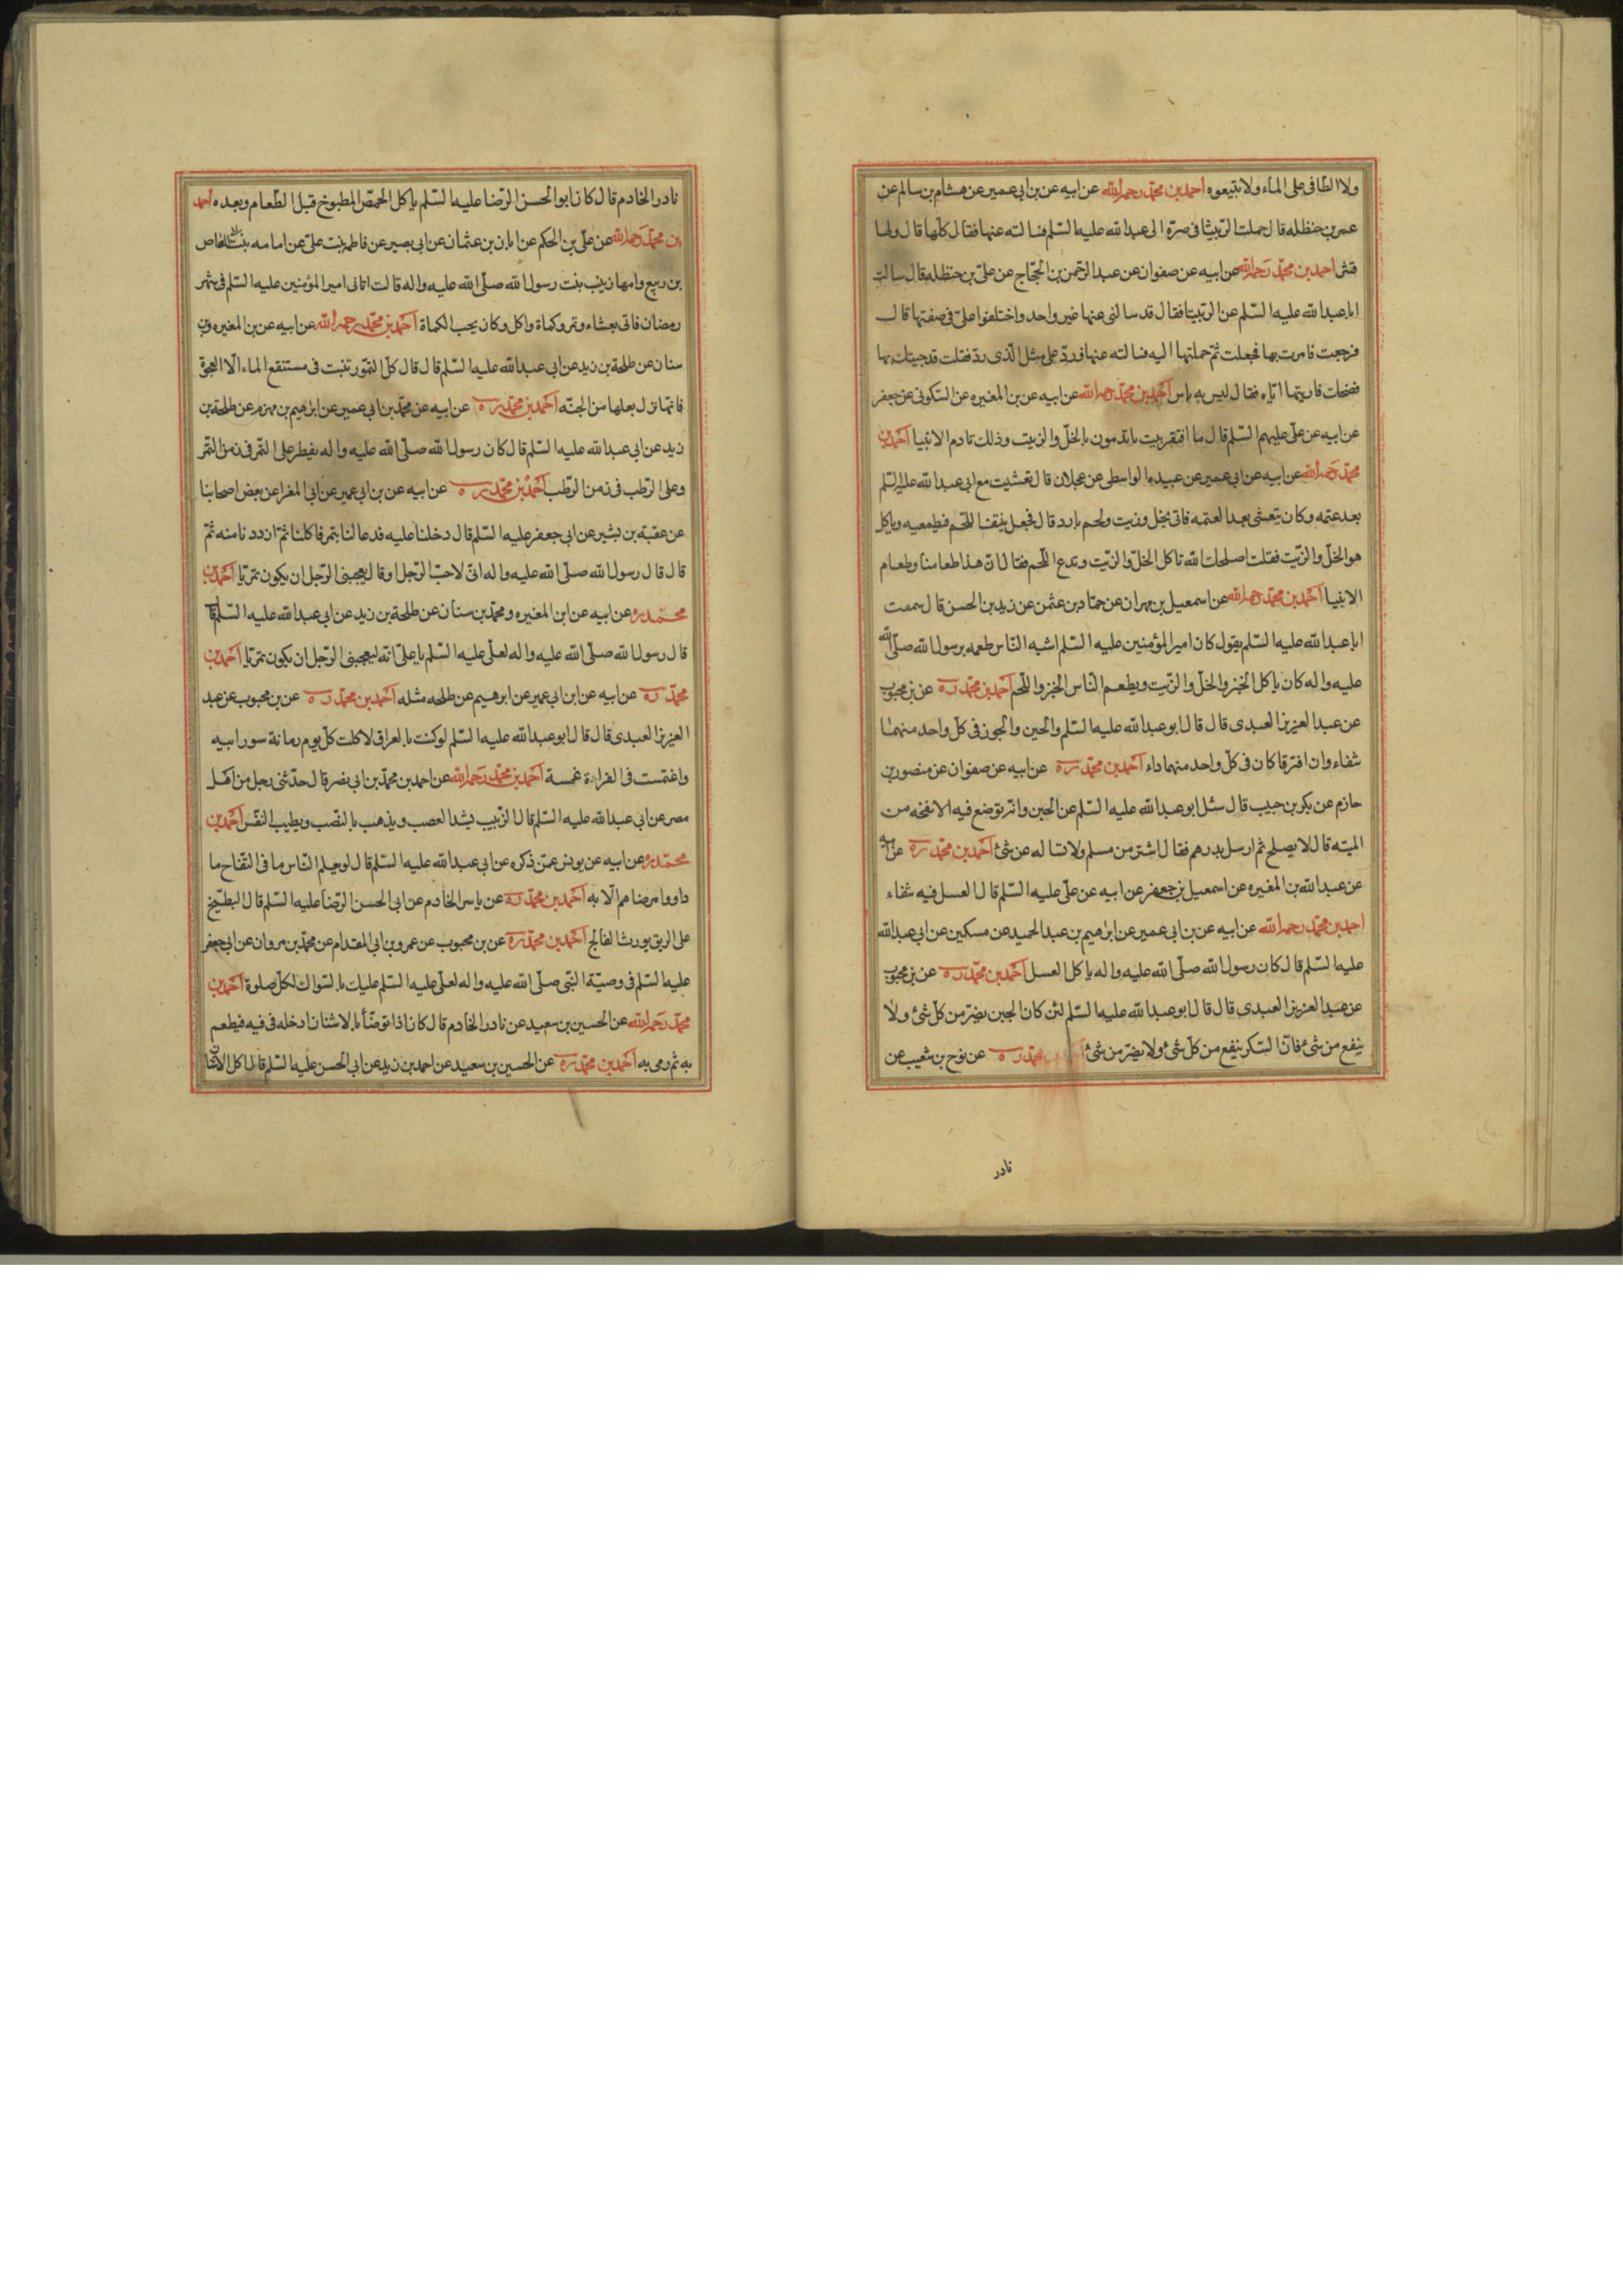 ولا الطافى على الماء ولا تبتيعوه احمد بن محمد رحمه الله عن ابيه عن بن ابى عمير عن هشام بن سالم عن
عمر بن حنظله قال حملت الربيثا فى صرة الى عبد الله عليه السلم فسالته عنها فقال كلها قال ولها
قشر احمد بن محمد رحمه الله عن ابيه عن صفوان عن عبد الرحمن بن الحجاج عن على بن حنظله قال سالت
ابا عبد الله عليه السلم عن الربيثا فقال قد سالنى عنها غير واحد واختلفوا على فى صفتها قال
فرجعت فامرت بها فجعلت ثم حملتها اليه فسالته عنها فرد على مثل الذى رد فقلت قد جيتك بها
فضحك فاريتها اياه فقال ليس به باس احمد بن محمد رحمه الله عن ابيه عن بن المغيره عن السكونى عن جعفر
عن ابيه عن على عليهم السلم قال ما افتقر بيت ياتدمون بالخل والزيت وذلك تادم الانبيا احمد بن
محمد رحمه الله عن ابيه عن ابى عمير عن عبيده الواسطى عن عجلان قال تعشيت مع ابى عبد الله عليه السلم
بعد عتمه وكان يتعشى بعد العتمه فاتى بخل وزيت ولحم بارد قال فجعل ينتف اللحم فيطعمنيه وياكل
هو الخل والزيت فقلت اصلحك الله تاكل الخل والزيت وتدع اللحم فقال ان هذا طعامنا وطعام
الانبيا احمد بن محمد رحمه الله عن اسمعيل بن مهران عن حماد بن عثمن عن زيد بن الحسن قال سمعت
ابا عبد الله عليه السلم يقول كان امير المؤمنين عليه السلم اشبه الناس طعمه برسول الله صلى الله
عليه واله كان ياكل الخبز والخل والزيت ويطعم الناس الخبز واللحم احمد بن محمد ره عن بن محبوب
عن عبد العزيز العبدى قال قال ابو عبد الله عليه السلم والجبن والجوز فى كل واحد منهما
شفاء وان افترقا كان فى كل واحد منهما داء احمد بن محمد ره عن ابيه عن صفوان عن منصور بن
حازم عن بكر بن حبيب قال سئل ابو عبد الله عليه السلم عن الجبن وانه توضع فيه الانفخه من
الميته قال لا يصلح ثم ارسل بدرهم فقال اشتر من مسلم ولا تساله عن شئ احمد بن محمد ره عن ابيه
عن عبد الله بن المغيره عن اسمعيل بن جعفر عن ابيه عن على عليه السلم قال العسل فيه شفاء
احمد بن محمد رحمه الله عن ابيه عن بن ابى عمير عن ابراهيم بن عبد الحميد عن مسكين عن ابى عبد الله
عليه السلم قال كان رسول الله صلى الله عليه واله ياكل العسل احمد بن محمد ره عن بن محبوب
عن عبد العزيز العبدى قال قال ابو عبد الله عليه السلم لئن كان الجبن يضر من كل شئ ولا
ينفع من شئ فان السكر ينفع من كل شئ ولا يضر من شئ احمد بن محمد ره عن نوح بن شعيب عن
نادر
نادر الخادم قال كان ابو الحسن الرضا عليه السلم ياكل الحمص المطبوخ قبل الطعام وبعده احمد
بن محمد رحمه الله عن على بن الحكم عن ابان بن عثمان عن ابى بصير عن فاطمه بنت على عن امامه بنت ابى العاص
بن ربيع وامها زينب بنت رسول الله صلى الله عليه واله قالت اتانى امير المؤمنين عليه السلم فى شهر
رمضان فاتى بعشاء وتمر وكماة واكل وكان يحب الكماة احمد بن محمد رحمه الله عن ابيه عن بن المغيره وبن
سنان عن طلحة بن زيد عن ابى عبد الله عليه السلم قال قال كل التمور تنبت فى مستنقع الماء الا العجوة
فانما نزل بعلها من الجنه احمد بن محمد ره عن ابيه عن محمد بن ابى عمير عن ابراهيم بن مهزم عن طلحة بن
زيد عن ابى عبد الله عليه السلم قال كان رسول الله صلى الله عليه واله يفطر على التمر فى زمن التمر
وعلى الرطب فى زمن الرطب احمد بن محمد ره عن ابيه عن بن ابى عمير عن ابى المغرا عن بعض اصحابنا
عن عقبة بن بشير عن ابى جعفر عليه السلم قال دخلنا عليه فدعا لنا بتمر فاكلنا ثم ازددنا منه ثم
قال قال رسول الله صلى الله عليه واله انى لاحب الرجل او قال يعجبنى الرجل ان يكون تمريا احمد بن
محمد ره عن ابيه عن ابن المغيره ومحمد بن سنان عن طلحة بن زيد عن ابى عبد الله عليه السلم قال
قال رسول الله صلى الله عليه واله لعلى عليه السلم يا على انه ليعجبنى الرجل ان يكون تمريا احمد بن
محمد ره عن ابيه عن ابن ابى عمير عن ابرهيم عن طلحه مثله احمد بن محمد ره عن بن محبوب عن عبد
العزيز العبدى قال قال ابو عبد الله عليه السلم لو كنت بالعراق لاكلت كل يوم رمانة سورابيه
واغتمست فى الفراءة غمسة احمد بن محمد رحمه الله عن احمد بن محمد بن ابى بضر قال حدثنى رجل من اهل
مصر عن ابى عبد الله عليه السلم قال الزبيب يشد العصب ويذهب بالنصب ويطيب النفس احمد بن
محمد ره عن ابيه عن يونس عمن ذكره عن ابى عبد الله عليه السلم قال لو يعلم الناس ما فى التفاح ما
داووا مرضاهم الا به احمد بن محمد ره عن ياسر الخادم عن ابى الحسن الرضا عليه السلم قال البطيخ
على الريق يورث الفالج احمد بن محمد ره عن بن محبوب عن عمرو بن ابى المقدام عن محمد بن مروان عن ابى جعفر
عليه السلم فى وصية النبى صلى الله عليه واله لعلى عليه السلم عليك بالسواك لكل صلوة احمد بن
محمد رحمه الله عن الحسين بن سعيد عن نادر الخادم قال كان اذا توضأ بالاشنان ادخله فى فيه فيطعم
به ثم رمى به احمد بن محمد ره عن الحسين بن سعيد عن احمد بن زيد عن ابى الحسن عليه السلم قال اكل الاشنان